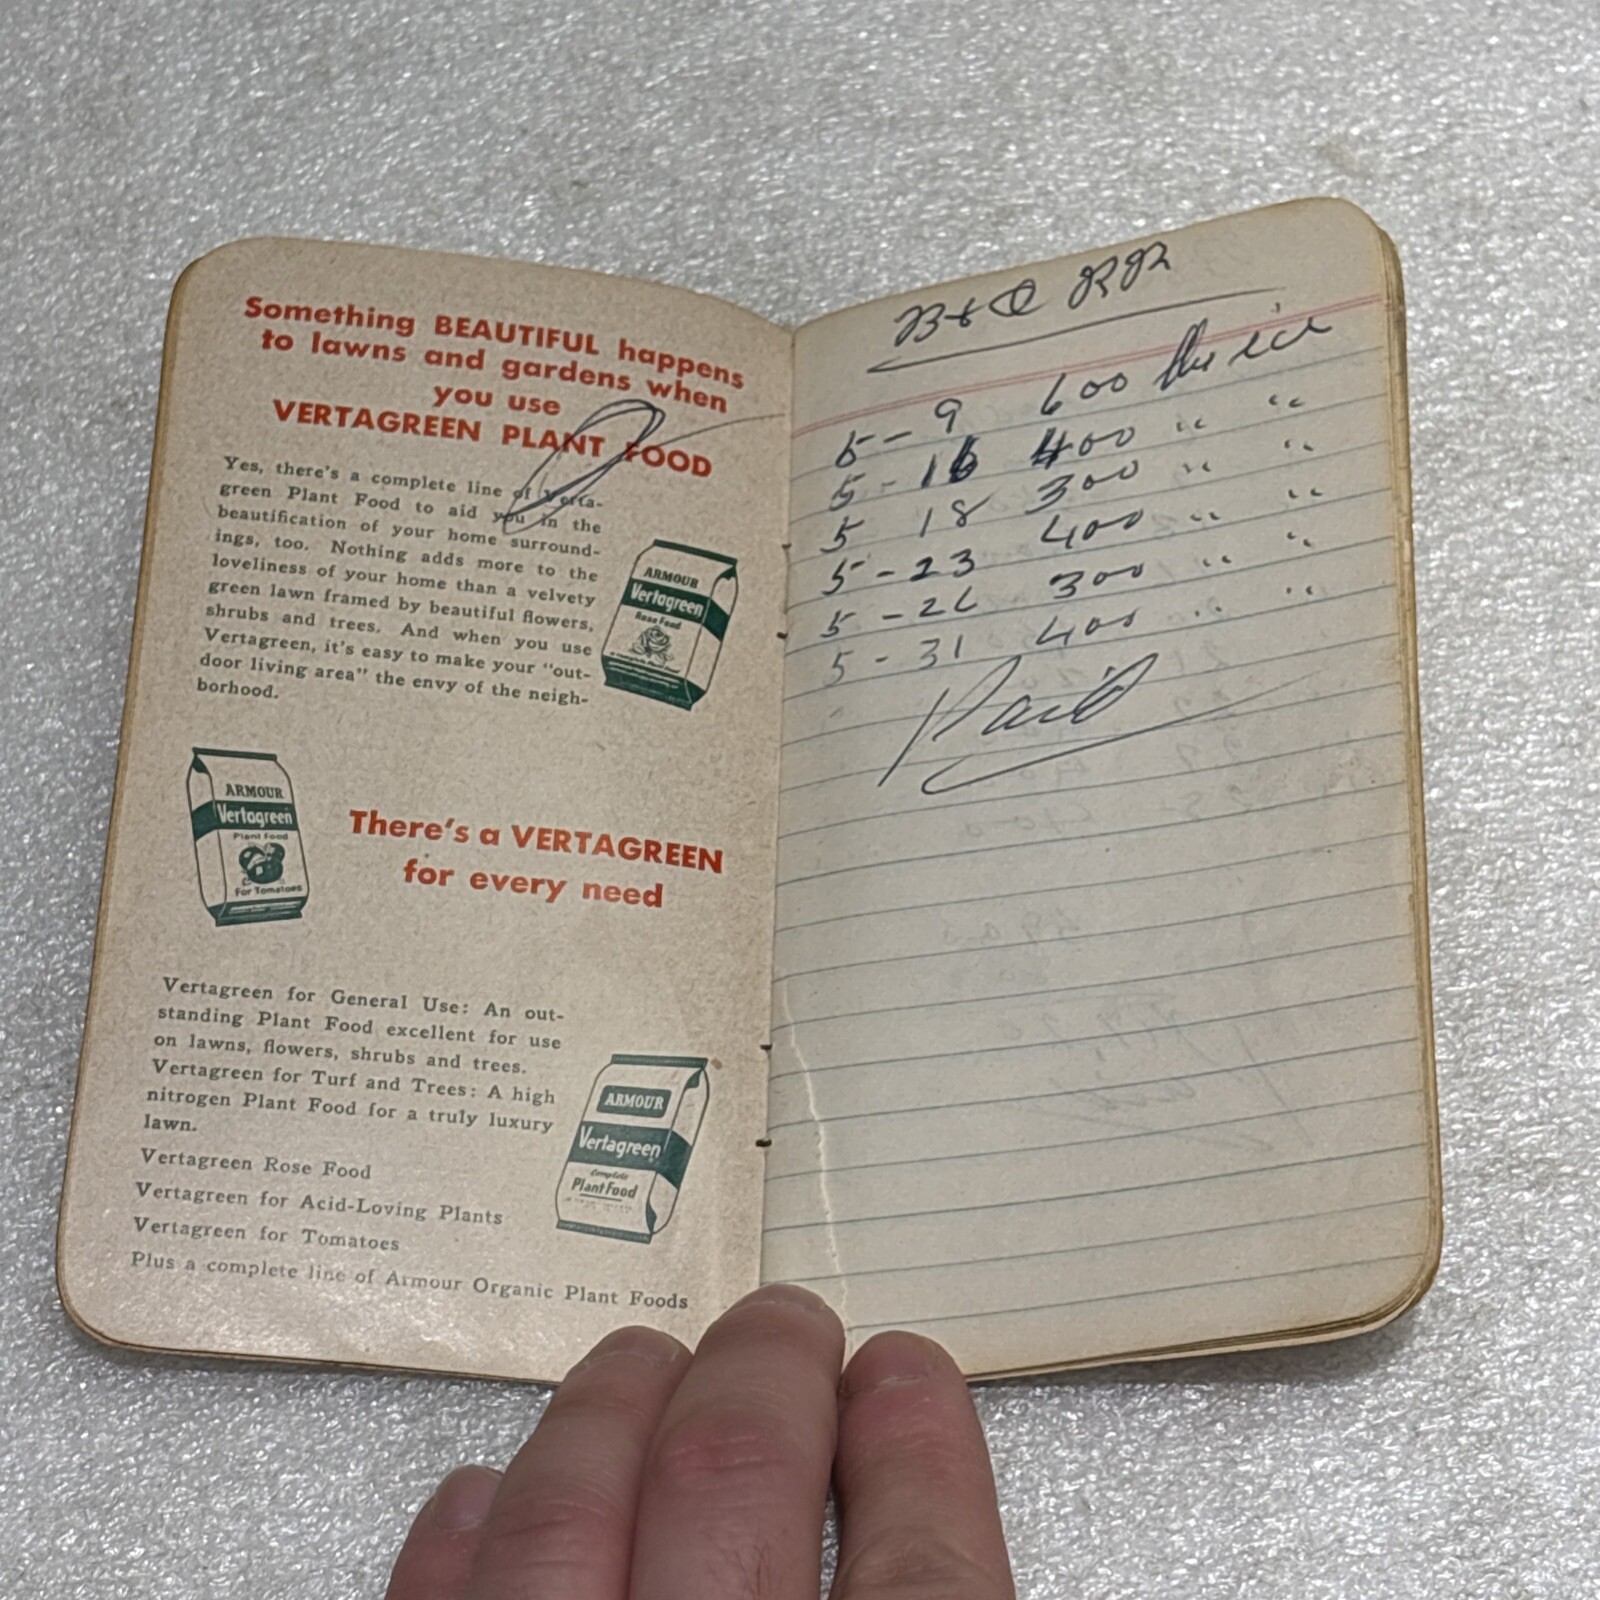 Something BEAUTIFUL happens
to lawns and gardens when
you use
VERTAGREEN PLANT FOOD
Yes, there's a complete line of Verta-
green Plant Food to aid you in the
beautification of your home surround-
ings, too. Nothing adds more to the
loveliness of your home than a velvety
green lawn framed by beautiful flowers,
shrubs and trees. And when you use
Vertagreen, it's easy to make your "out-
door living area" the envy of the neigh-
borhood.
ARMOUR
Vertagreen
Rose Food
ARMOUR
Vertagreen
Plant Food
For Tomatoes
There's a VERTAGREEN
for every need
Vertagreen for General Use: An out-
standing Plant Food excellent for use
on lawns, flowers, shrubs and trees.
Vertagreen for Turf and Trees: A high
nitrogen Plant Food for a truly luxury
lawn.
Vertagreen Rose Food
Vertagreen for Acid-Loving Plants
Vertagreen for Tomatoes
Plus a complete line of Armour Organic Plant Foods
ARMOUR
Vertagreen
Complete
Plant Food
B+O RR
5-9 600 ice
5-16 400 " "
5 18 300 " "
5-23 400 " "
5-26 300 " "
5-31 400 " "
Paid